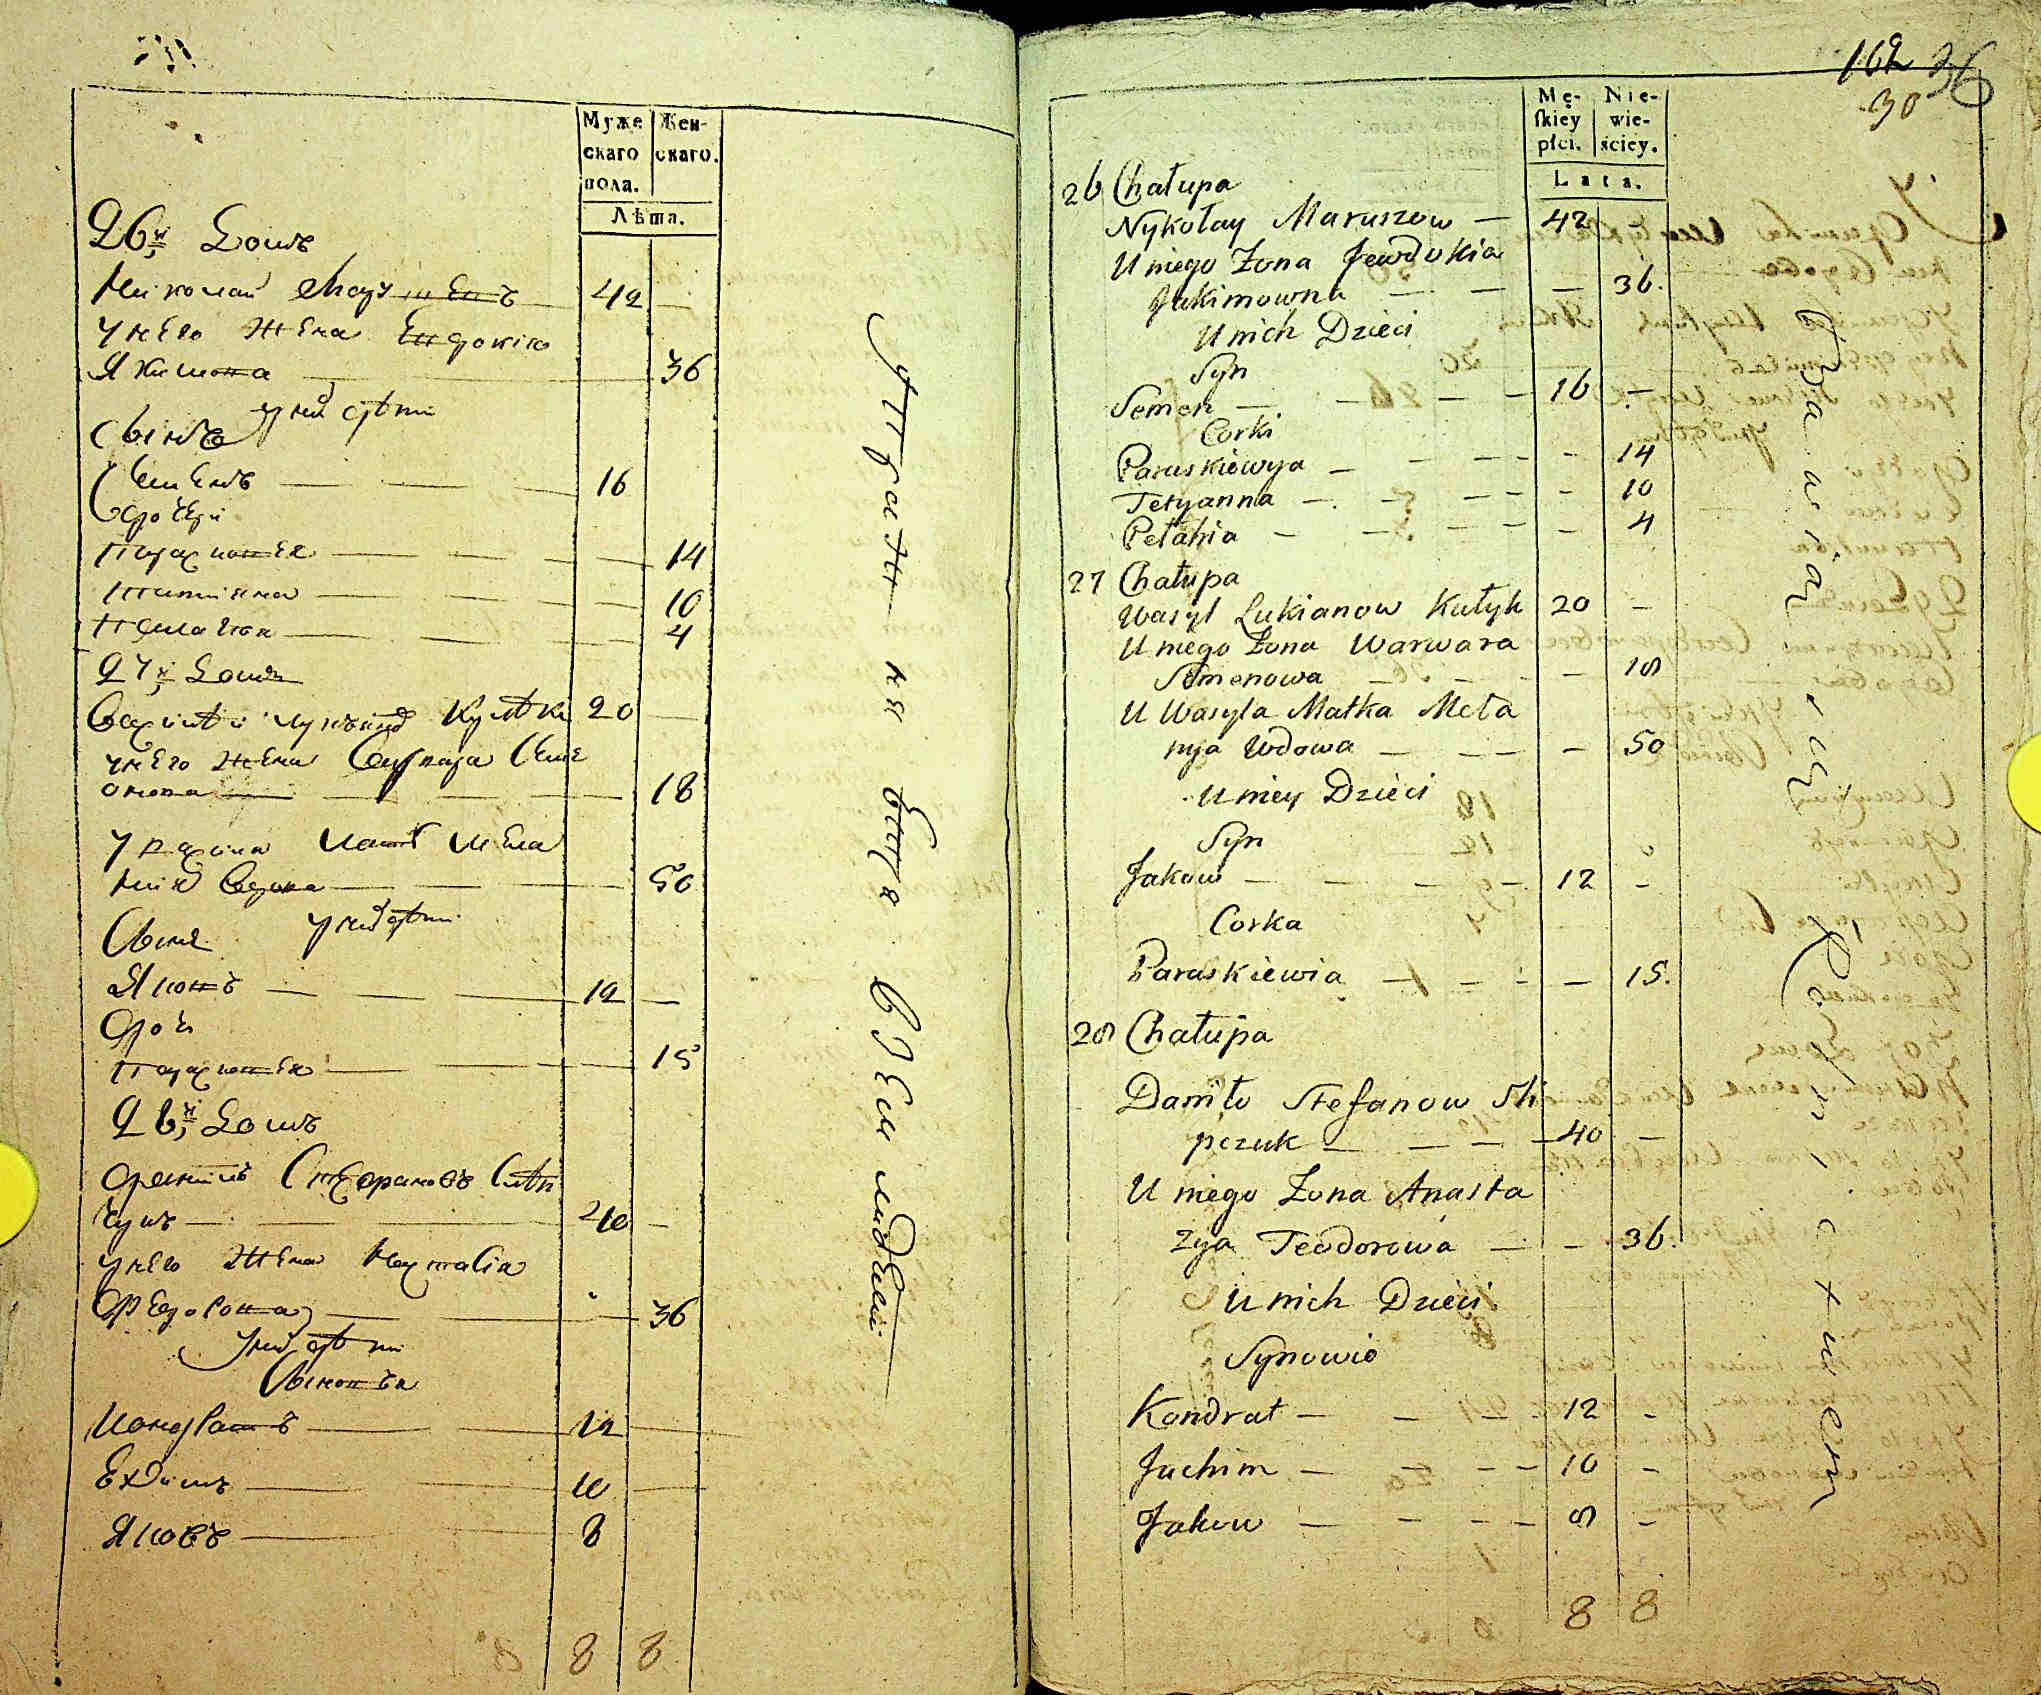 Муже
скаго
пола.
Жен-
скаго.
Лѣта.
26й Домъ
Николай 42 —
у него жена Евдокия
Якимова — 36
у них дѣти
Сынъ
Семенъ — — — 16
Дочери
Параскевея — — — 14
Татияна — — — 10
Пелагия — — — 4
27й Домъ
Василий Лукянов 20 —
у него жена Варвара Семе
онова — — — 18
у Василя мать Мела
ния вдова — — — 50
у ней дѣти
Сынъ
Яковъ — — — 12 —
Дочь
Параскевея — — — 15
28й Домъ
Данилъ Стефановъ Слѣп
чукъ — — 40 —
у него жена Настасия
Федорова — — 36
у них дѣти
Сыновья
Кондратъ — — 12 —
Ехимъ — — 10 —
Яковъ — 8
8 8
162 36
30
Mę-
skiey
płci.
Nie-
wie-
ściey.
Lata.
26 Chałupa
Nykołay Maruszow — 42 —
U niego Żona Jewdokia
Jakimowna — — — 36.
U nich Dzieci
Syn
Semen — — — — 16 —
Corki
Paraskiewya — — — — — 14
Tetyanna — — — — — 10
Pełahia — — — — — 4
27 Chałupa
Wasyl Łukianow Kułyk 20 —
U niego Żona Warwara
Semenowa — — — — 18
U Wasyla Matka Meła
nya Wdowa — — — — 50
U niey Dzieci
Syn
Jakow — — — — 12 —
Corka
Paraskiewia — — — — 15.
28 Chałupa
Daniło Stefanow Sli
pczuk — — — — 40 —
U niego Żona Anasta
zya Teodorowa — — 36.
U nich Dzieci
Synowie
Kondrat — — — 12 —
Jachim — — — — 10 —
Jakow — — — — 8 —
8 8